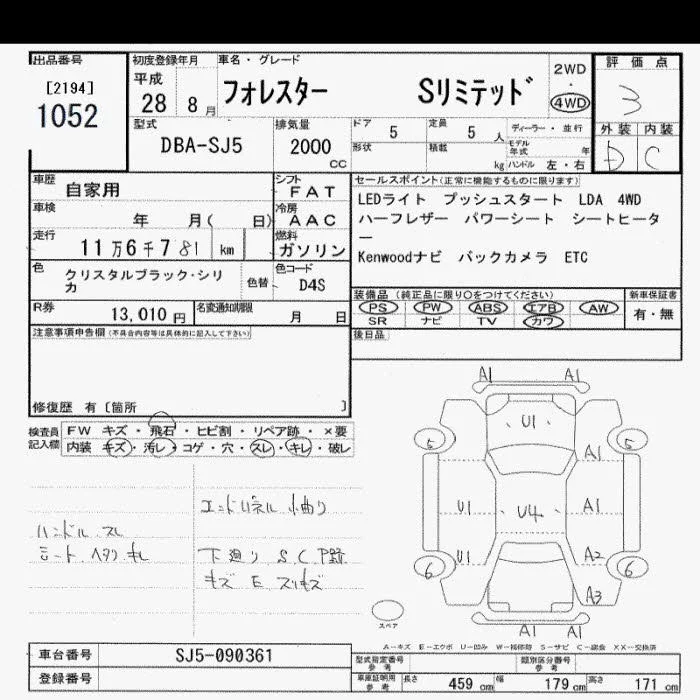 出品番号
[2194]
1052
初度登録年月
平成
28 8 月
車名・グレード
フォレスター Sリミテッド
2WD
・
4WD
評価点
3
外装 内装
D C
型式
DBA-SJ5
排気量
2000
cc
ドア 5
形状
定員 5 人
積載 kg
ディーラー・並行
モデル年式 年
ハンドル 左・右
車歴 自家用
車検 年 月( 日)
走行 11万6千781 km
色 クリスタルブラック・シリカ
色替
シフト FAT
冷房 AAC
燃料 ガソリン
色コード D4S
R券 13,010 円
名変通知期限 月 日
セールスポイント(正常に機能するものに限ります)
LEDライト プッシュスタート LDA 4WD
ハーフレザー パワーシート シートヒータ
ー
Kenwoodナビ バックカメラ ETC
装備品 (純正品に限り○をつけてください)
PS PW ABS エアB AW
SR ナビ TV カワ
新車保証書
有・無
後日品
注意事項申告欄(不具合内容等は具体的に記入して下さい)
修復歴 有〔箇所 〕
検査員
記入欄
FW キズ・飛石・ヒビ割・リペア跡・×要
内装 キズ・汚レ・コゲ・穴・スレ・キレ・破レ
ハンドル スレ
シート ヘタリ キレ
エンドパネル 小曲り
下廻り S.C
キズ E スリキズ
A1 A1
U1
5 5
A1
U1 U4 A1
U1 A2
6 6
A3
A1 A1
スペア
A-キズ E-エクボ U-凹み W-補修跡 S-サビ C-腐食 XX-交換済
車台番号 SJ5-090361
登録番号
型式指定番号
参考
類別区分番号
参考
車庫証明用
参考
長さ 459 cm 幅 179 cm 高さ 171 cm